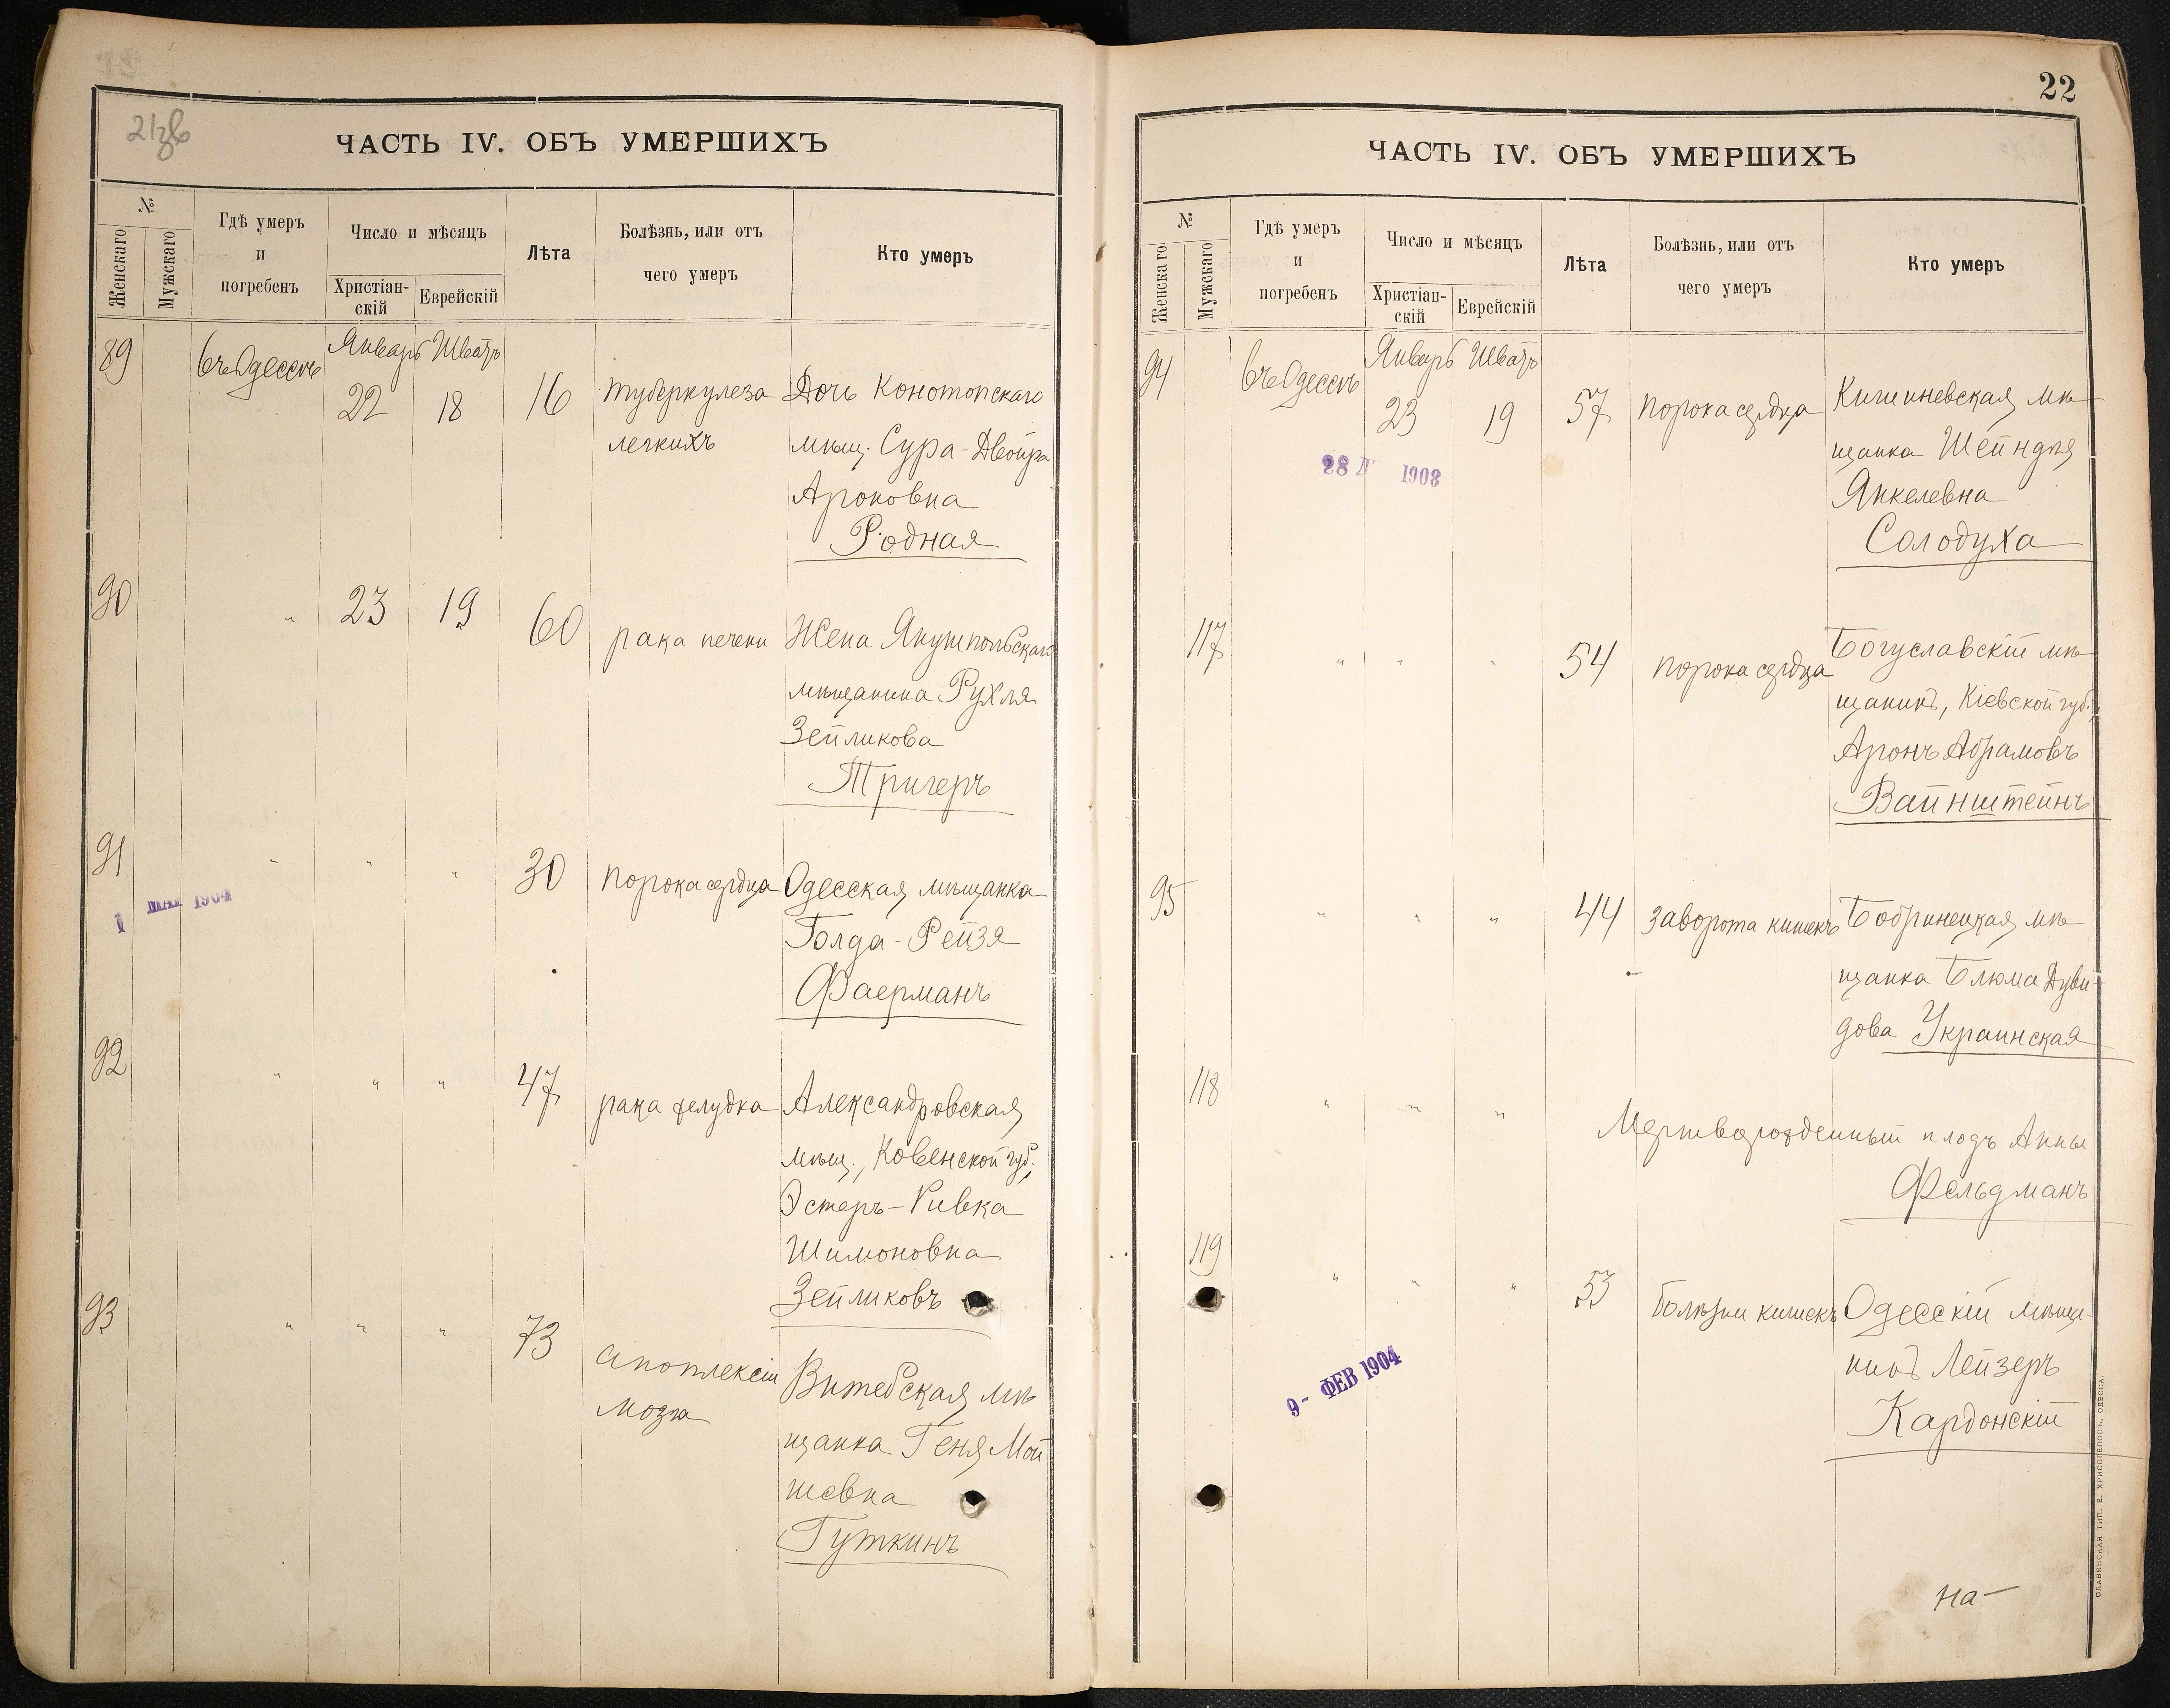 21зв
ЧАСТЬ IV. ОБЪ УМЕРШИХЪ
№
Женскаго
Мужскаго
Гдѣ умеръ
и
погребенъ
Число и мѣсяцъ
Христіан-
скій
Еврейскій
Лѣта
Болѣзнь, или отъ
чего умеръ
Кто умеръ
89 въ Одессѣ Январь Шватъ
22 18 16 туберкулеза Дочь Конотопскаго
легкихъ мѣщ. Сура-Двойра
Ароновна
Родная
90 " 23 19 60 рака печени Жена Янушпольскаго
мѣщанина Рухля
Зейликова
Тригеръ
91 " " " 30 порока сердца Одесская мѣщанка
1 МАР 1904
Голда-Рейзя
Фаерманъ
92 " " " 47 рака желудка Александровская
мѣщ., Ковенской губ.,
Эстеръ-Ривка
Шимоновна
Зейликовъ
93 " " " 73 апоплексіи Витебская мѣ
мозга щанка Геня Мой
шевна
Гуткинъ
22
ЧАСТЬ IV. ОБЪ УМЕРШИХЪ
№
Женскаго
Мужскаго
Гдѣ умеръ
и
погребенъ
Число и мѣсяцъ
Христіан-
скій
Еврейскій
Лѣта
Болѣзнь, или отъ
чего умеръ
Кто умеръ
94 въ Одессѣ Январь Шватъ
23 19 57 порока сердца Кишиневская мѣ
28 1908
щанка Шейндля
Янкелевна
Солодуха
117 " " " 54 порока сердца Богуславскій мѣ
щанинъ, Кіевской губ.,
Аронъ Абрамовъ
Вайнштейнъ
95 " " " 44 заворота кишекъ Бобринецкая мѣ
щанка Блюма Дуви-
дова Украинская
118 " " " Мертворожденный плодъ Анны
Фельдманъ
119 " " " 53 болѣзни кишекъ Одесскій мѣща-
нинъ Лейзеръ
9- ФЕВ 1904
Кардонскій
на—
СЛАВЯНСКАЯ ТИП. Е. ХРИСОГЕЛОСЪ, ОДЕССА.